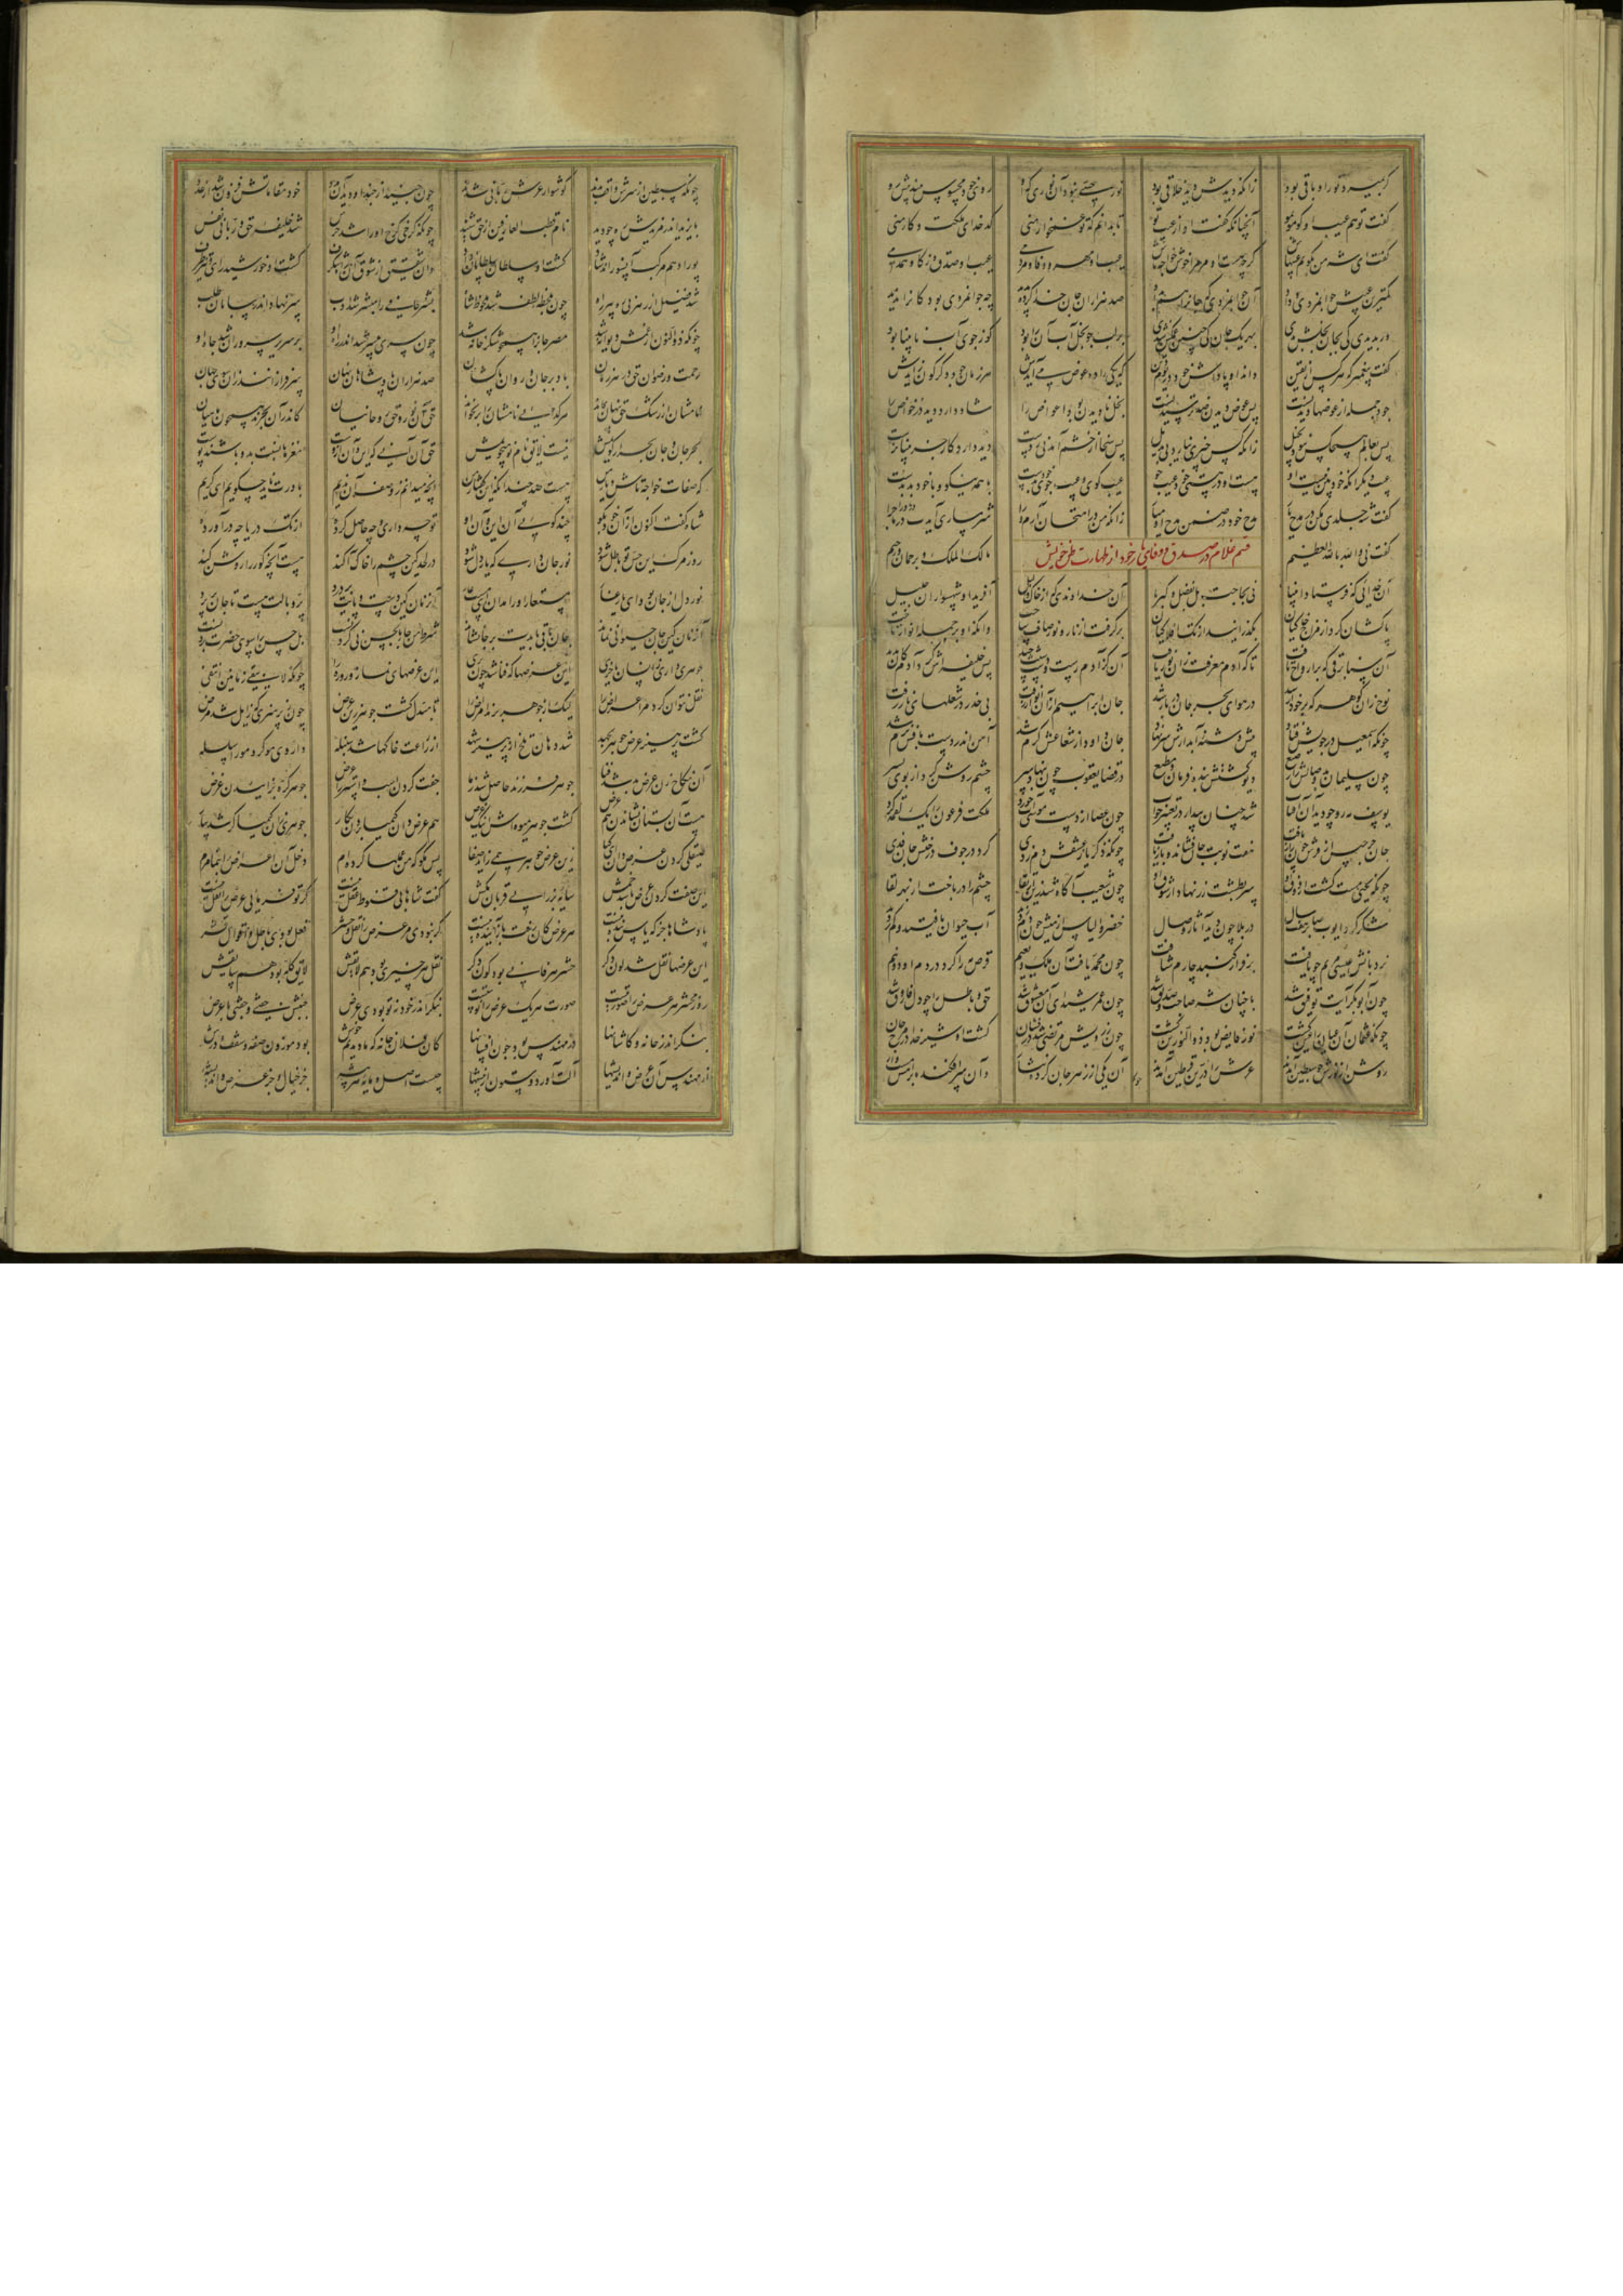 کر بمیرد نور او باقی بود زانکه دیدش دید خلاقی بود
گفت تو هم عیب او گو مو بمو آنچنانکه گفت او از عیب تو تا بدانم که تو غمخوار منی کدخدای ملکت و کار منی
گفت ای شه من بگویم عیبهاش گرچه هست او مر مرا خوش خواجه تاش عیب او مهر و وفا و مردمی عیب او صدق و ذکا و همدمی
کمترین عیبش جوانمردی و داد آن جوانمردی که جانرا هم بداد صد هزاران جان خدا کرده پدید چه جوانمردی بود کانرا ندید
ور بدیدی کی بجان بخلش بدی بهر یک جان کی چنین غمگین شدی بر لب جو بخل آب آنرا بود کو ز جوی آب نابینا بود
گفت پیغمبر که هر کس از یقین داند او پاداش خود در یوم دین که یکی را ده عوض می آیدش هر زمان جودی دگرگون زایدش
جود جمله از عوضها دیدنست پس عوض دیدن ضد ترسیدنست بخل نادیدن بود اعواض را شاد دارد دید در خواض را
پس بعالم هیچکس نبود بخیل زانکه کس چیزی نبازد بی بدیل پس سخا از چشم آمد نی ز دست دید دارد کار جز بینا نرست
عیب دیگر آنکه خودبین نیست او هست او در هستی خود عیب جو عیب گوی و عیب جوی خود بدست با همه نیکو و با خود بد بدست
گفت شه جلدی مکن در مدح یار مدح خود در ضمن مدح او میار زانکه من در امتحان آرم ورا شرمساری آیدت در ماجرا
قسم غلام در صدق و وفای یار خود از طهارت ظن خویش
گفت نی والله بالله العظیم مالک الملک و برحمان و رحیم
آن خدایی که فرستاد انبیا نی بحاجت بل بفضل و کبریا آن خداوندی که از خاک ذلیل آفرید او شهسواران جلیل
پاکشان کرد از مزاج خاکیان بگذرانید از تک افلاکیان برگرفت از نار و نور صاف ساخت وانگه او بر جمله انوار تاخت
آن سنابرقی که بر ارواح تافت تا که آدم معرفت زان نور یافت آن کز آدم رست و دست شیث چید پس خلیفه اش کرد آدم کان بدید
نوح زان گوهر که برخوردار بد در هوای بحر جان دربار بد جان ابراهیم از آن انوار زفت بی حذر در شعلهای نار رفت
چونکه اسمعیل در جویش فتاد پیش دشنه آبدارش سر نهاد جان داود از شعاعش گرم شد آهن اندر دست بافش نرم شد
چون سلیمان بد وصالش را رضیع دیو گشتش بنده فرمان و مطیع در قضا یعقوب چون بنهاد سر چشم روشن کرد از بوی پسر
یوسف مه رو چو دید آن آفتاب شد چنان بیدار در تعبیر خواب چون عصا از دست موسی آب خورد ملکت فرعون را یک لقمه کرد
جان جرجیس از فرش چون راز یافت هفت نوبت جان فشاند و باز یافت چونکه ذکریا ز عشقش دم زدی کرد در جوف درختش جان فدی
چونکه یحیی مست گشت از ذوق او سر بطشت زر نهاد از شوق او چون شعیب آگاه شد زین ارتقا چشم را در باخت از بهر لقا
شکر کرد ایوب صابر هفت سال در بلا چون دید آثار وصال خضر و الیاس از میش چون دم زدند آب حیوان یافتند و کم زدند
نردبانش عیسی مریم چو یافت بر فراز گنبد چارم شتافت چون محمد یافت آن ملک و نعیم قرص مه را کرد در دم او دو نیم
چون ابوبکر آیت توفیق شد با چنان شه صاحب و صدیق شد چون عمر شیدای آن معشوق شد حق و باطل را چو دل فاروق شد
چونکه عثمان آن عیان را عین گشت نور فایض بود و ذو النورین گشت چون ز رویش مرتضی شد درفشان گشت او شیر خدا در مرج جان
روشن از نورش چو سبطین آمدند عرش را درین قرطین آمدند آن یکی از زهر جان کرده نثار وان سر افکنده براهش مست وار
چونکه سبطین از سرش واقف بدند گوشوار عرش ربانی شدند چون جنید از جند او دید آن مدد خود مقاماتش فزون شد از عدد
بایزید اندر مزیدش ره چو دید نام قطب العارفین از حق شنید چونکه کرخی کرخ او را شد حرس شد خلیفه حق و ربانی نفس
پور ادهم مرکب آنسو راند شاد گشت او سلطان سلطانان داد وان شقیق از شوق آن راه شگرف گشت او خورشید رای و تیز طرف
شد فضیل از رهزنی ره بین راه چون بلحظ لطف شد ملحوظ شاه بشر حافی را مبشر شد ادب سر نهاد اندر بیابان طلب
چونکه ذوالنون از غمش دیوانه شد مصر جان را همچو شکر خانه شد چون سری بیسر شد اندر راه او بر سریر سروران شد جاه او
رحمت و رضوان حق در هر زمان باد بر جان و روان پاکشان صد هزاران پادشاهان نهان سر فرازانند زان سوی جهان
نامشان از رشک حق پنهان بماند هر گدایی نامشان را بر نخواند حق آن نور و حق روحانیان کاندر آن بحرند همچون ماهیان
بحر جان و جان بحر ار گویمش نیست لایق نام نو میجویمش حق آن آنی که این و آن ازوست مغزها نسبت بدو باشند پوست
که صفات خواجه تاش و یار من هست صد چندانکه این گفتار من آنچه میدانم ز وصف آن ندیم باورت ناید چه گویم ای کریم
شاه گفت اکنون از آن خود بگو چند گویی آن این و آن او تو چه داری و چه حاصل کرده از تک دریا چه در آورده
روز مرگ این حس تو باطل شود نور جان داری که یار دل شود در لحد کین چشم را خاک آکند هست آنچه گور را روشن کند
نور دل از جان بود ای یار غار مستعار او را مدان آن زمان کین دست و پایت بر درد پر و بالت هست تا جان بر پرد
آن زمان کین جان حیوانی نماند جان باقی بایدت بر جا نشاند شرط من جا بالحسن نی کردنست بل حسن را سوی حضرت بردنست
جوهری داری ز انسان یا خری این عرضها که فنا شد چون بری این عرضهای نماز و روزه را چونکه لایبقی زمانین انتفی
نقل نتوان کرد مر اعراض را لیک از جوهر برند امراض را تا مبدل گشت جوهر زین عرض چون ز پرهیزی که زایل شد مرض
گشت پرهیز عرض جوهر بجهد شد دهان تلخ از پرهیز شهد از زراعت خاکها شد سنبله داروی مو کرد مو را سلسله
آن نکاح زن عرض بد شد فنا جوهر فرزند حاصل شد ز ما جفت کردن اسب و اشتر را عرض جوهر کره بزاییدن غرض
هست آن بستان نشاندن هم عرض گشت جوهر میوه اش اینک غرض هم عرض دان کیمیا بردن بکار جوهری زان کیمیا گر شد بیار
صیقلی کردن عرض باشد شها زین عرض جوهر همی زاید صفا پس مگو که من عملها کرده ام دخل آن اعراض را بنما مرم
این صفت کردن عرض باشد خمش سایه بز را پی قربان مکش گفت شاها بی قنوط عقل نیست گر تو فرمایی عرض را نقل نیست
پادشاها جز که یاس بنده نیست هر عرض کان رفت باز آینده نیست گر نبودی مر عرض را نقل و حشر فعل بودی باطل و اقوال فشر
این عرضها نقل شد لون دگر حشر هر فانی بود کون دگر نقل هر چیزی بود هم لایقش لایق گله بود هم سایقش
روز محشر هر عرض را صورتیست صورت هر یک عرض را نوبتیست بنگر اندر خود نه تو بودی عرض جنبش جفتی و جفتی با غرض
بنگر اندر خانه و کاشانها در مهندس بود چون افسانها کان فلان خانه که ما دیدیم خوش بود موزون صفه و سقف و درش
از مهندس آن عرض و اندیشها آلت آورد و ستون از بیشها چیست اصل و مایه هر پیشه جز خیال و جز عرض و اندیشه